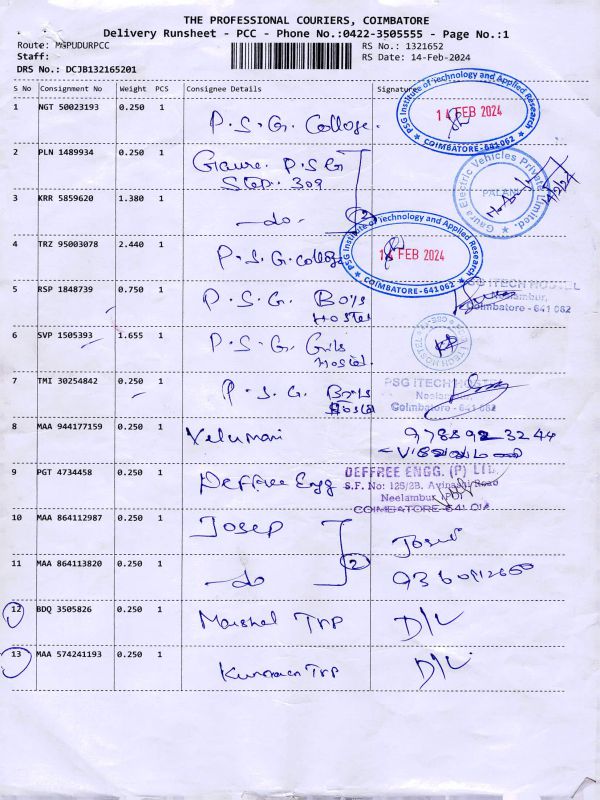 THE PROFESSIONAL COURIERS, COIMBATORE
Delivery Runsheet - PCC - Phone No.:0422-3505555 - Page No.:1
Route: MGPUDURPCC
RS No.: 1321652
Staff:
RS Date: 14-Feb-2024
DRS No.: DCJB132165201
S No Consignment No Weight PCS Consignee Details Signature
1 NGT 50023193 0.250 1 P.S.G. College.
PSG Institute of Technology and Applied Research
14 FEB 2024
COIMBATORE-641 062
2 PLN 1489934 0.250 1 P.S.G
309
Gaura Electric Vehicles Private Limited.
PALANI
3 KRR 5859620 1.380 1 -do- 2
4 TRZ 95003078 2.440 1 P.S.G. college
PSG Institute of Technology and Applied Research
FEB 2024
COIMBATORE-641 062
5 RSP 1848739 0.750 1 P.S.G. Boys
Hostel
PSG ITECH HOSTEL
Neelambur,
Coimbatore - 641 062
6 SVP 1505393 1.655 1 P.S.G. Girls
Hostel
7 TMI 30254842 0.250 1 P.S.G. Boys
Hostel
PSG ITECH HOSTEL
Neelambur,
Coimbatore - 641 062
8 MAA 944177159 0.250 1 Velumani
9 PGT 4734458 0.250 1 Deffree Engg
DEFFREE ENGG. (P) LTD.
S.F. No: 125/2B, Avinashi Road
Neelambur (PO)
COIMBATORE-641 014
10 MAA 864112987 0.250 1 Josep
11 MAA 864113820 0.250 1 -do 2
12 BDQ 3505826 0.250 1 D/L
13 MAA 574241193 0.250 1 D/L